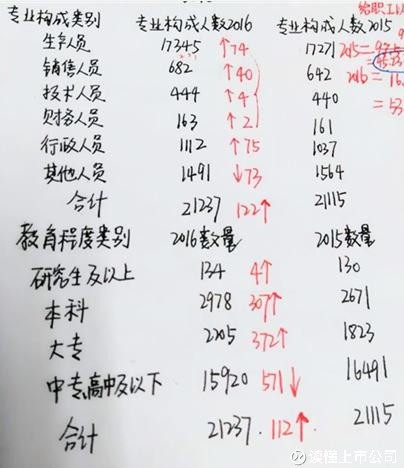 专业构成类别 专业构成人数2016 专业构成人数2015
生产人员 17345 ↑74 17271
销售人员 682 ↑40 642
技术人员 444 ↑4 440
财务人员 163 ↑2 161
行政人员 1112 ↑75 1037
其他人员 1491 ↓73 1564
合计 21237 122↑ 21115
教育程度类别 2016数量 2015数量
研究生及以上 134 4↑ 130
本科 2978 307↑ 2671
大专 2205 372↑ 1823
中专,高中及以下 15920 571↓ 16491
合计 21237 . 112↑ . 21115
2015=
2016=
读懂上市公司